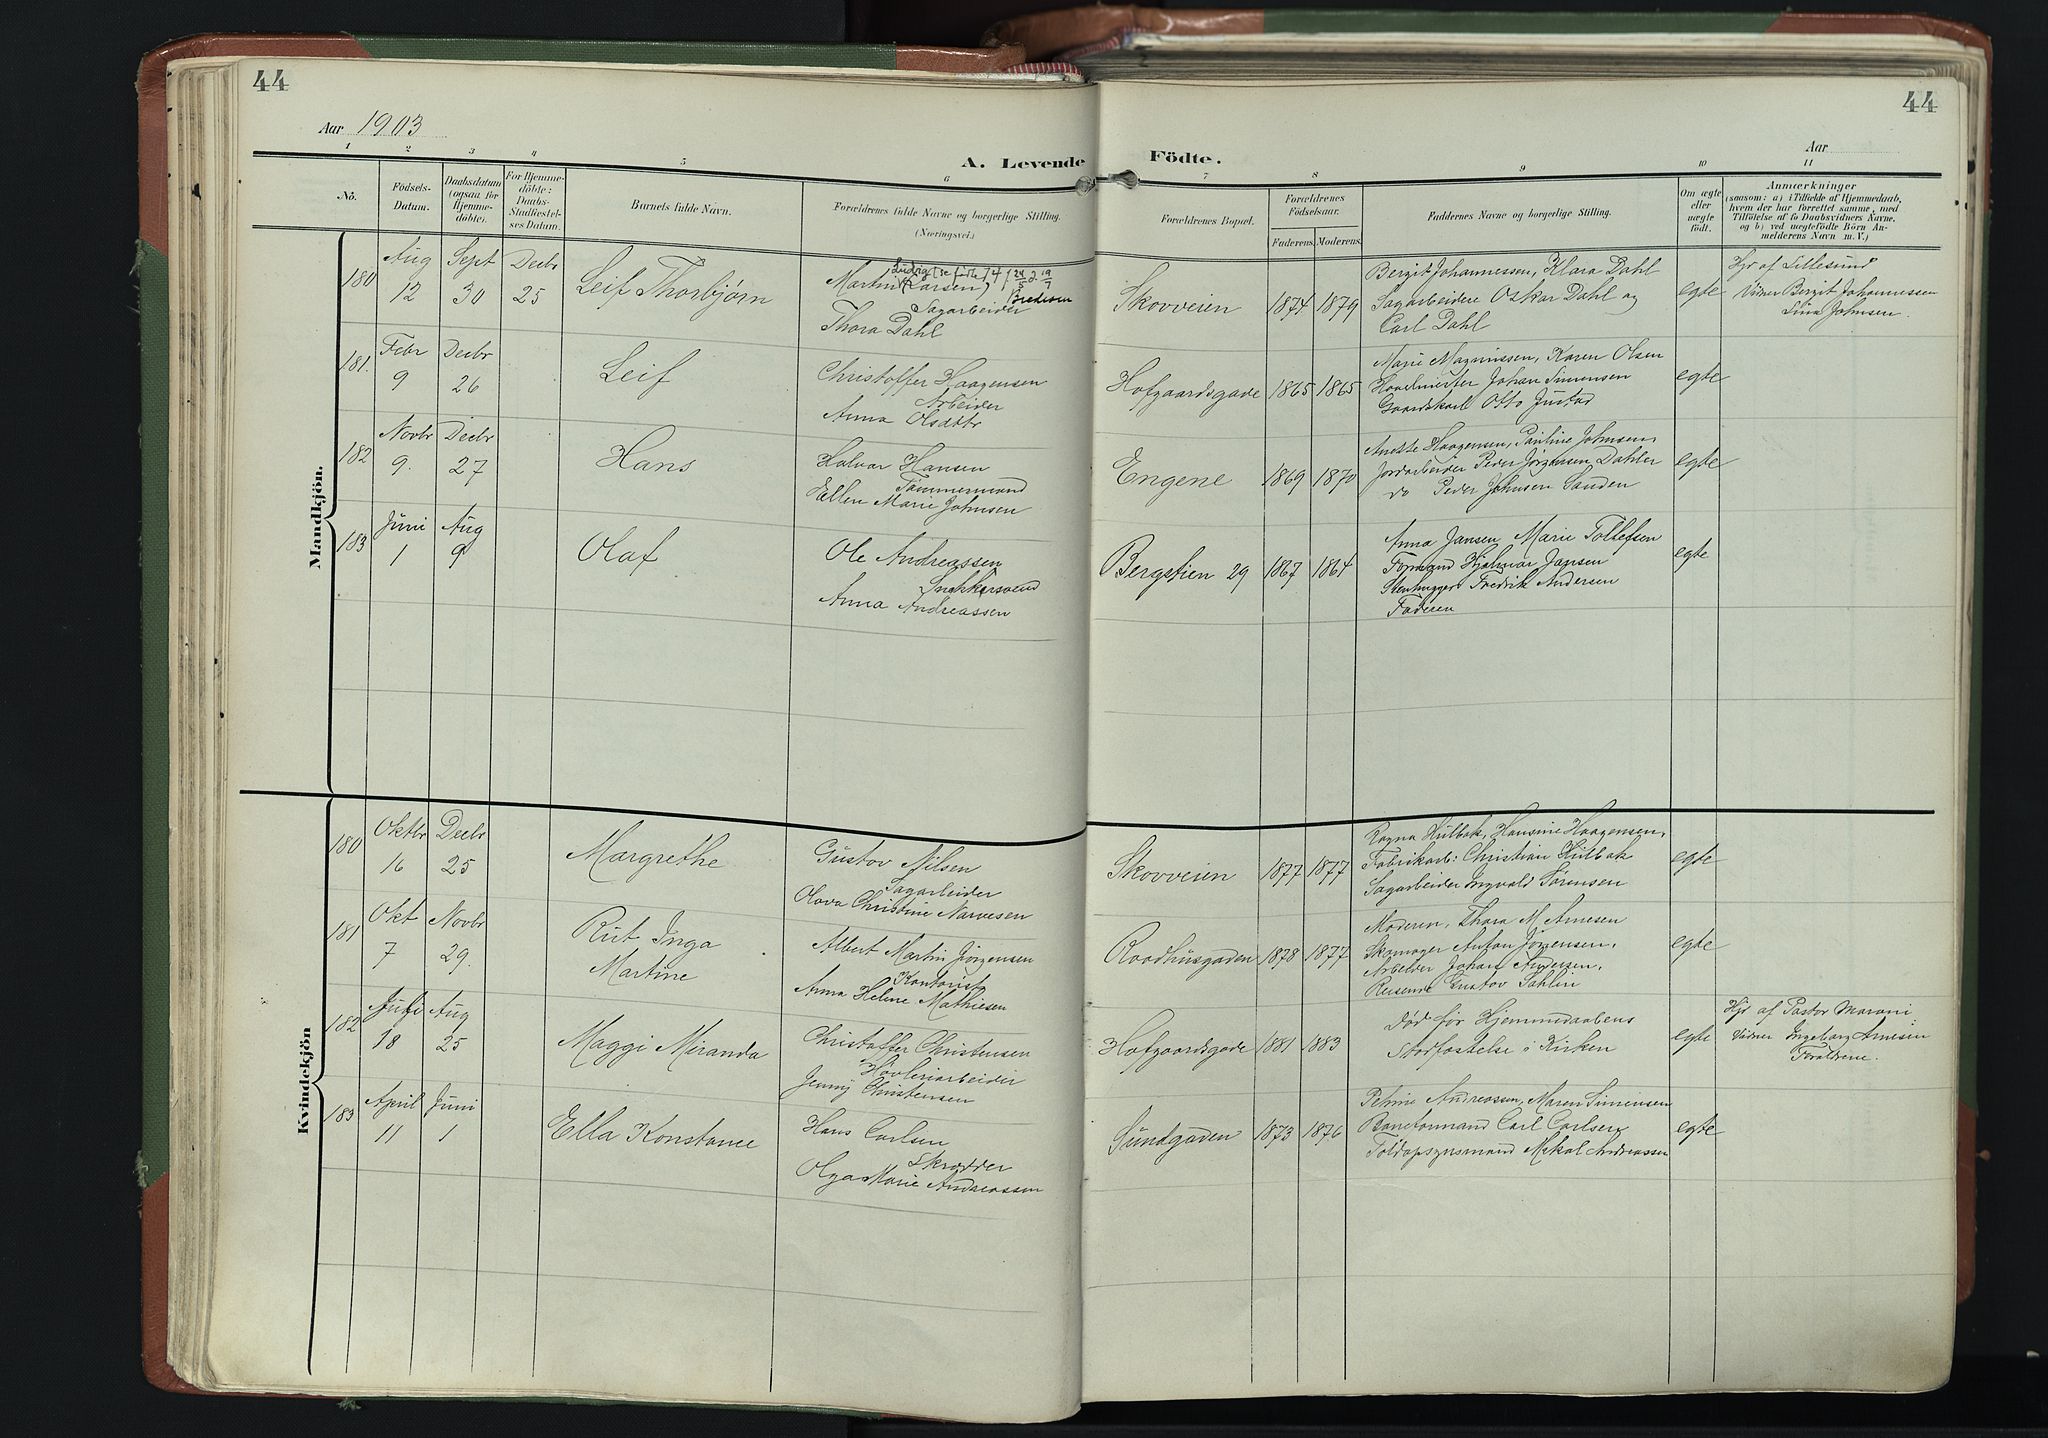 44
44
Aar 1903
Aar
A. Levende Födte.
1 2 3 4 5 6 7 8 9 10 11
No.
Födsels-
Datum.
Daabsdatum
(ogsaa for
Hjemme-
döbte).
For Hjemme-
döbte:
Daabs-
Stadfæstel-
ses Datum.
Barnets fulde Navn.
Forældrenes fulde Navne og borgerlige Stilling.
(Næringsvei.)
Forældrenes Bopæl.
Forældrenes
Födselsaar.
Faderens. Moderens.
Faddernes Navne og borgerlige Stilling.
Om ægte
eller
uægte
födt.
Anmærkninger
(saasom: a) i Tilfælde af Hjemmedaab,
hvem der har forrettet samme, med
Tilföielse af to Daabsvidners Navne,
og b) ved uægtefödte Börn An-
melderens Navn m. V.)
Mandkjön.
180
Aug
12
Sept
30
Decbr
25
Leif Thorbjørn
Ludvig
Martin Karsen
Bredesen
Sagarbeider
Thora Dahl
Skovveien
1874 1879
Bergit Johannessen, Klara Dahl
Sagarbeidere Oskar Dahl og
Carl Dahl
egte
Hjd af Lillesund
Vidner Bergit Johannessen
Lina Johnsen.
181.
Febr
9
Decbr
26
Leif
Christoffer Haagensen
Arbeider
Anna Olsdttr
Hofgaardsgade
1865 1865
Marie Magnussen, Karen Olsen
Hovelmester Johan Simensen
Gaardskarl Otto Justad
egte
182
Novbr
9.
Decbr
27
Hans
Halvor Hansen
Tømmermand
Ellen Marie Johnsen
Engene
1869 1870
Anette Haagensen, Pauline Johnsen,
Jordarbeider Peder Jørgensen Dahler
Do Peder Johnsen Sanden
egte
183
Juni
1
Aug
9
Olaf
Ole Andreassen
Snekkersvend
Anna Andreassen
Bergstien 29
1867 1864
Anna Jansen Marie Tollefsen
Formand Hjalmar Jansen
Stenhugger Fredrik Andersen
Faderen
egte
Kvindekjön
180
Oktbr
16
Decbr
25
Margrethe
Gustav Nilsen
Sagarbeider
Olava Christine Narvesen
Skovveien
1877 1877
Ragna Hulbak, Hansine Haagensen,
Fabrikarb: Christian Hulbak
Sagarbeider Ingvald Sørensen
egte
181
Okt
7
Novbr
29.
Rut Inga
Martine
Albert Martin Jörgensen
Kontorist
Anna Helene Mathiesen
Raadhusgaden
1878 1877
Moderen, Thora M Arnesen
Skomager Anton Jørgensen,
Arbeider Johan Andersen,
Reisende Gustav Sahlin
egte
182
Juli
18
Aug
25
Maggi Miranda
Christoffer Christensen
Høvleriarbeider
Jenny Christensen
Hofgaardsgade
1881 1883
Død før Hjemmedaabens
Stadfæstelse i Kirken
egte
Hjd af Pastor
Vidner Ingeborg Arnesen
Forældrene.
183
April
11
Juni
1
Ella Konstance
Hans Carlsen
Skrædder
Olga Marie Andreassen
Sundgaden
1873 1876
Petrine Andreassen, Maren Simensen
Baneformand Carl Carlsen
Toldopsynsmand Mikal Andreassen
egte